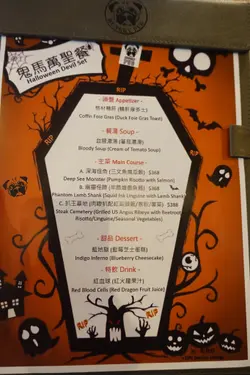 鬼馬萬聖餐
Halloween Devil Set
- 頭盤 Appetizer -
Coffin Foie Gras (Duck Foie Gras Toast)
- 餐湯 Soup -
Bloody Soup (Cream of Tomato Soup)
- 主菜 Main Course -
A. 深海怪魚 (三文魚南瓜飯) $268
Deep Sea Monster (Pumpkin Risotto with Salmon)
Phantom Lamb Shank (Squid Ink Linguine with Lamb Shank)
Steak Cemetery (Grilled US Angus Ribeye with Beetroot
Risotto/Linguine/Seasonal Vegetables)
- 甜品 Dessert -
Indigo Inferno (Blueberry Cheesecake)
- 特飲 Drink -
紅血球 (紅火龍果汁)
Red Blood Cells (Red Dragon Fruit Juice)
RIP
RIP
RIP